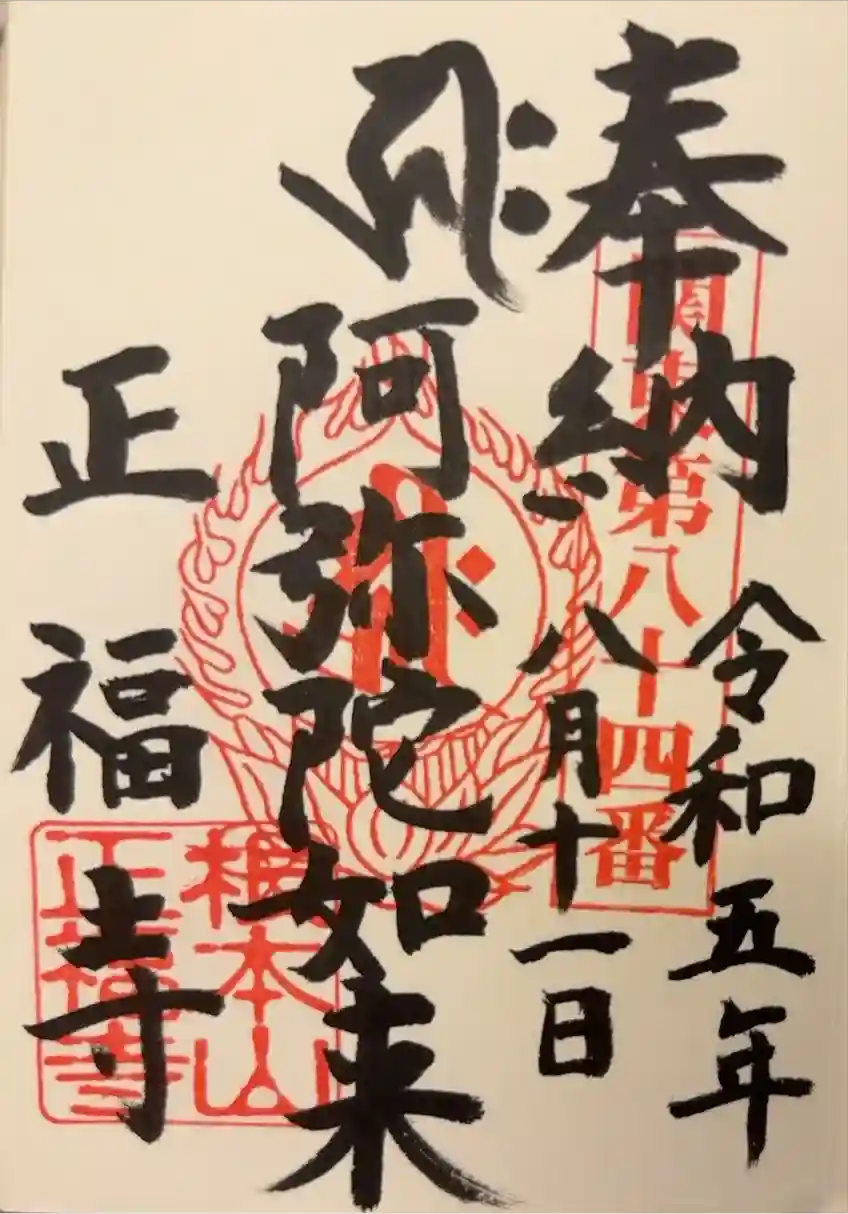 奉納
関東第八十四番
令和五年
八月十一日
𑖮𑖿𑖨𑖱𑖾
阿弥陀如来
正福寺
根本山
正福寺